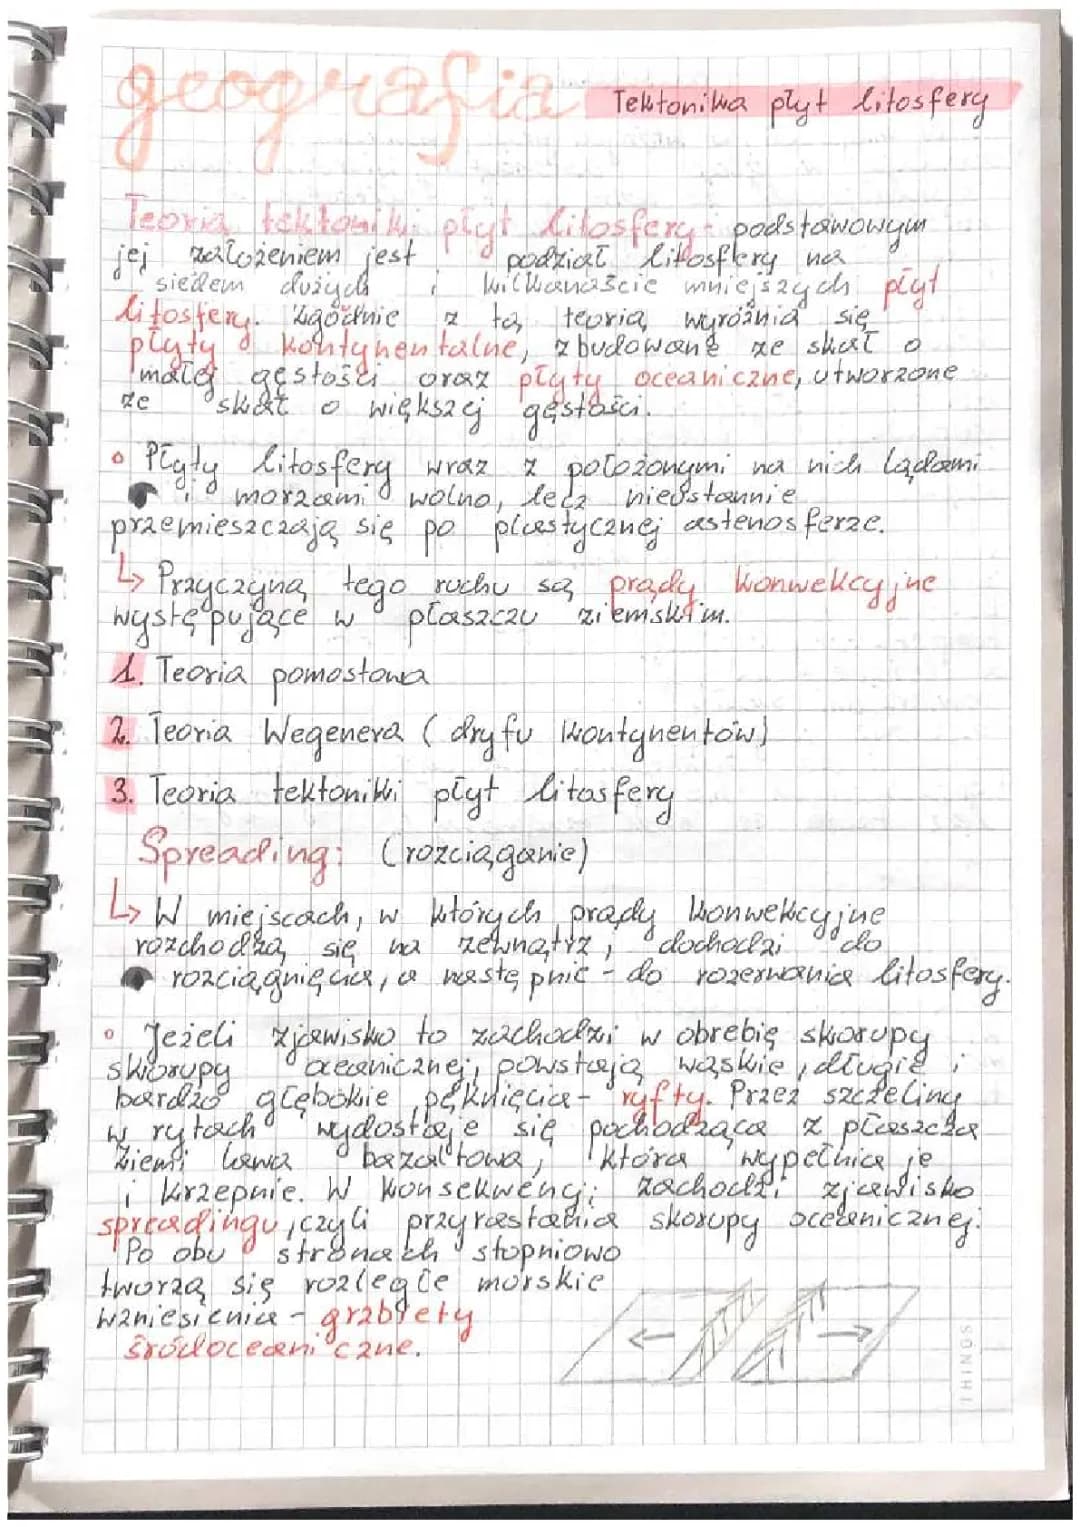 geografia
Tektonika płyt litosfery
Teoria tektoniki płyt litosfery - podstawowym
jej założeniem jest podział litosfery na
siedem dużych i kilkanaście mniejszych płyt
litosfery. Zgodnie z tą teorią wyróżnia się
płyty kontynentalne, zbudowane ze skał o
małej gęstości oraz płyty oceaniczne, utworzone
ze skał o większej gęstości.
• Płyty litosfery wraz z położonymi na nich lądami
i morzami wolno, lecz nieustannie
przemieszczają się po plastycznej astenosferze.
↳ Przyczyną tego ruchu są prądy konwekcyjne
występujące w płaszczu ziemskim.
1. Teoria pomostowa
2. Teoria Wegenera (dryfu kontynentów)
3. Teoria tektoniki płyt litosfery
Spreading: (rozciąganie)
↳ W miejscach, w których prądy konwekcyjne
rozchodzą się na zewnątrz, dochodzi do
rozciągnięcia, a następnie - do rozerwania litosfery.
• Jeżeli zjawisko to zachodzi w obrębię skorupy
skorupy oceanicznej, powstają wąskie, długie i
bardzo głębokie pęknięcia - ryfty. Przez szczeliny
w rytach wydostaje się pochodząca z płaszcza
ziemi lawa bazaltowa, która wypełnia je
i krzepnie. W konsekwencji zachodzi zjawisko
spreadingu, czyli przyrastania skorupy oceanicznej.
Po obu stronach stopniowo
tworzą się rozległe morskie
wzniesienia - grzbiety
śródoceaniczne.
THINGS